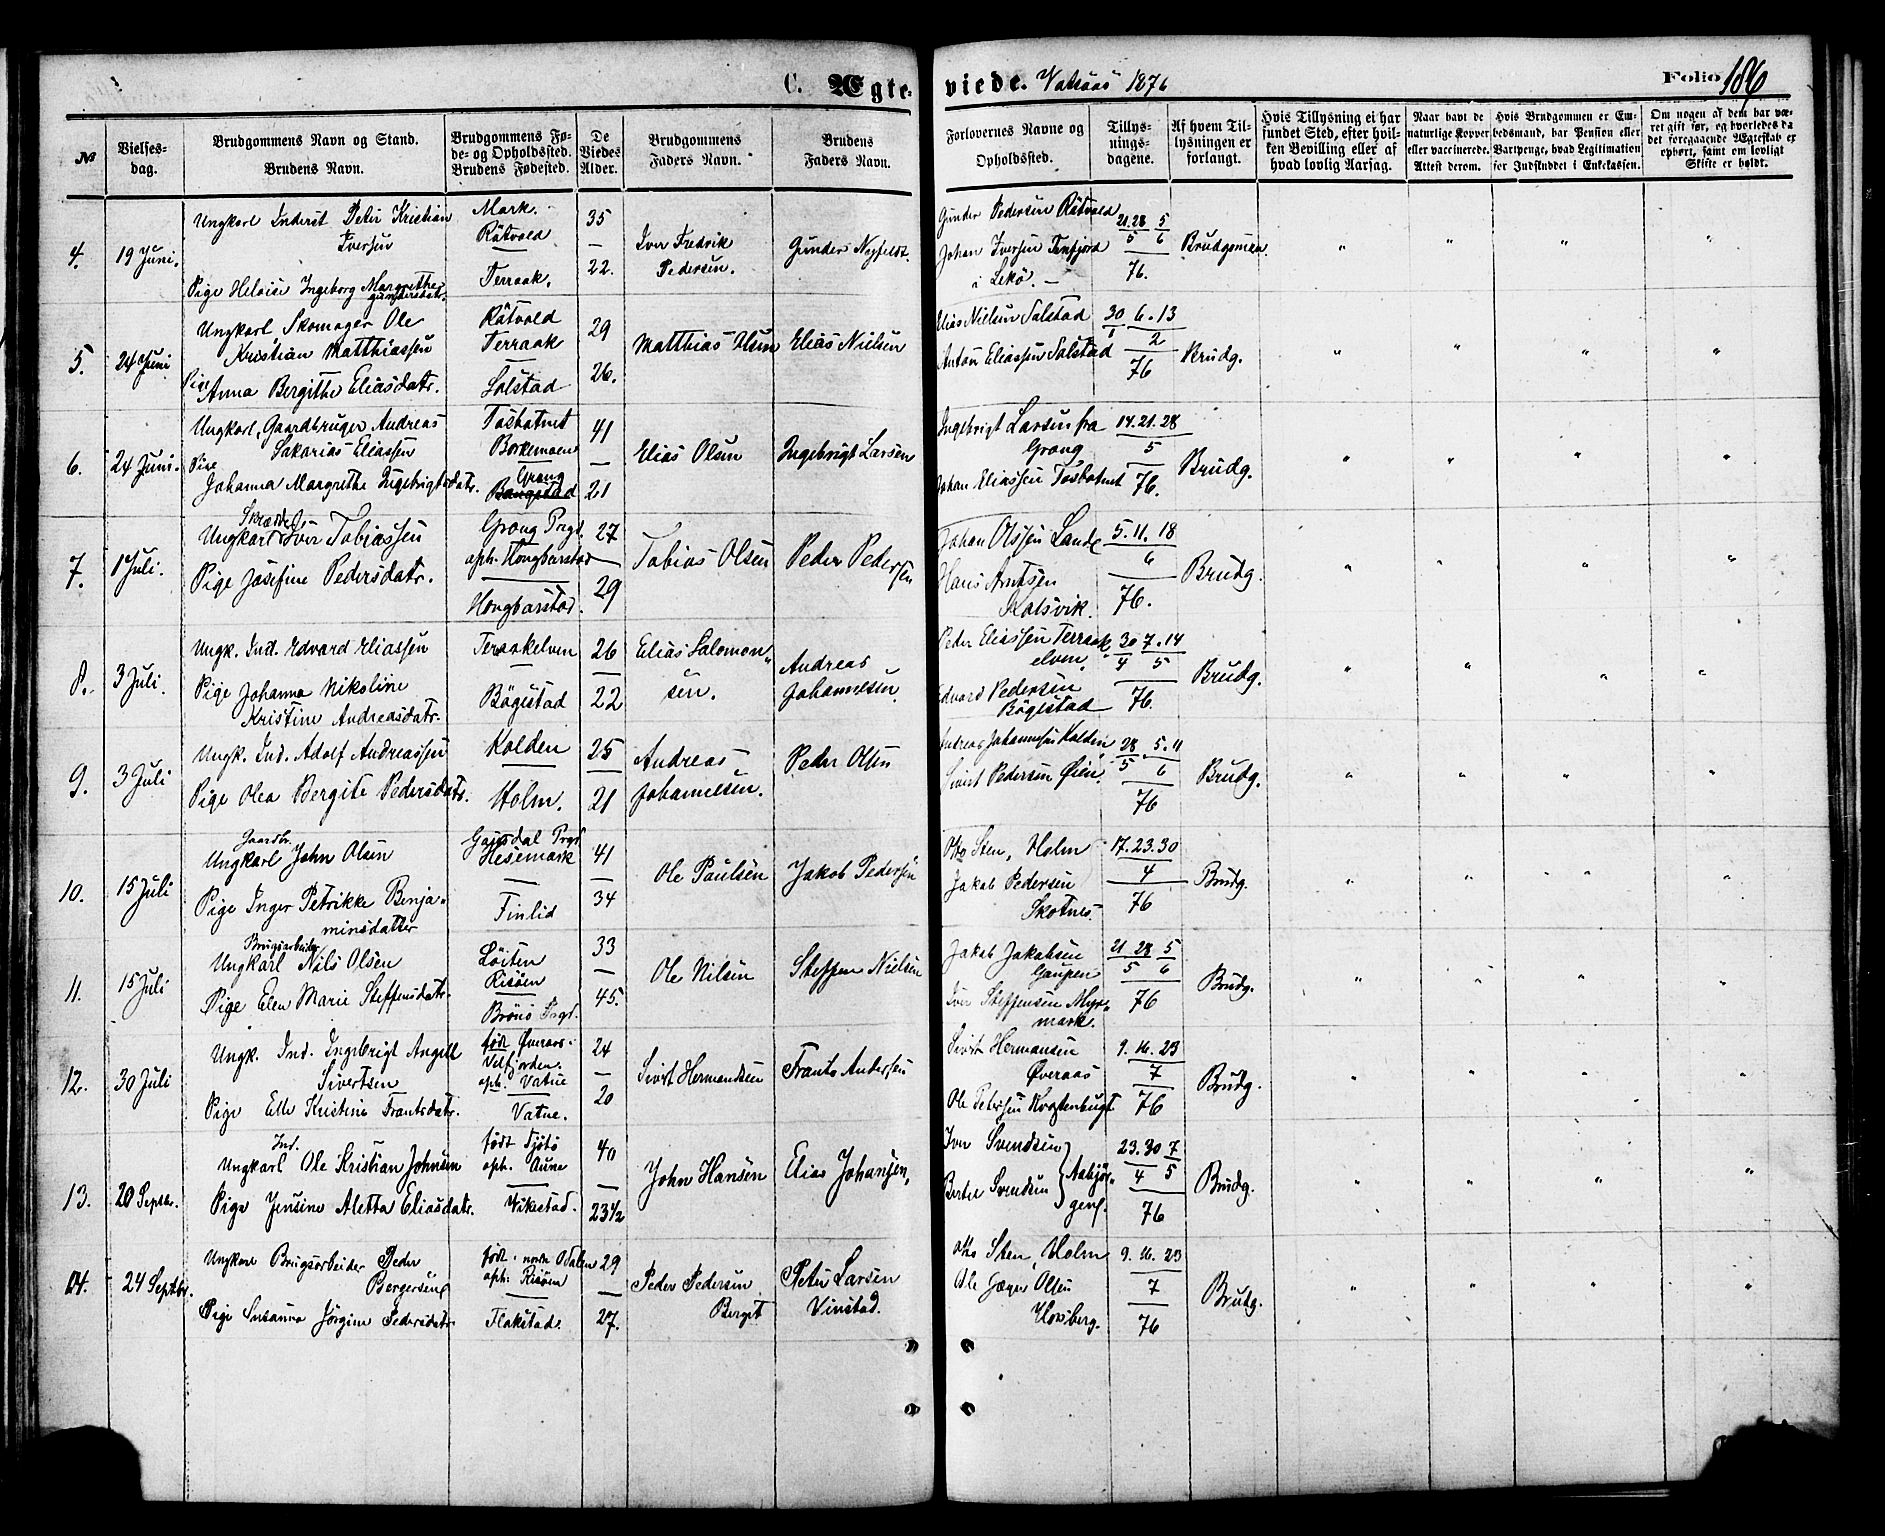 C. Ægte-
viede. Vatsaas 1876
Folio 186
№
Vielses-
dag.
Brudgommens Navn og Stand.
Brudens Navn.
Brudgommens Fø-
de- og Opholdssted.
Brudens Fødested.
De
Viedes
Alder.
Brudgommens
Faders Navn.
Brudens
Faders Navn.
Forlovernes Navne og
Opholdssted.
Tillys-
nings-
dagene.
Af hvem Til-
lysningen er
forlangt.
Hvis Tillysning ei har
fundet Sted, efter hvil-
ken Bevilling eller af
hvad lovlig Aarsag.
Naar havt de
naturlige Kopper
eller vaccinerede.
Attest derom.
Hvis Brudgommen er Em-
bedsmand, har Pension eller
Vartpenge, hvad Legitimation
for Indskuddet i Enkekassen.
Om nogen af dem har væ-
ret gift før, og hvorledes da
det foregaaende Ægteskab er
ophørt, samt om lovligt
Skifte er holdt.
4. 19 Juni.
Ungkarl Inderst Peter Kristian
Iversen
Pige Heloise Ingeborg Margrethe
Gundersdatr.
Mark.
Råtvold
Terraak.
35
22.
Iver Fredrik
Pedersen.
Gunder
Gunder Pedersen Råtvold
Johan Iversen
i Lekø.
21.28 5
5 6
76.
Brudgommen
5. 24 Juni
Ungkarl Skomager Ole
Kristian Matthiassen
Pige
Anna Bergithe Eliasdatr.
Råtvold
Terraak
Solstad
29
26.
Matthias Olsen
Elias Nielsen
Elias Nielsen Solstad
Anton Eliassen Solstad
30 6.13
1 2
76
Brudg.
6. 24 Juni.
Ungkarl, Gaardbruger Andreas
Sakarias Eliassen
Pige
Johanna Margrethe Ingebrigtsdatr.
Tosbotnet
Borkemoen
Grong
41
21
Elias Olsen
Ingebrigt Larsen
Ingebrigt Larsen fra
Grong
Johan Eliassen Tosbotnet
14.21.28
5
76.
Brudg.
7. 1 Juli.
Skrædder
Ungkarl Iver Tobiassen
Pige Josefine Pedersdatr.
Grong Prgd.
oph. Hongbarstad
Hongbarstad.
27
29
Tobias Olsen
Peder Pedersen
Johan Olssen Lande
Hans Arntsen
Kalsvik.
5.11.18
6
76.
Brudg.
8. 3 Juli.
Ungk. Ind. Edvard Eliassen
Pige Johanna Nikoline
Kristine Andreasdatr.
Teraakelven
Bögestad
26
22
Elias Salomon-
sen.
Andreas
Johannesen.
Peder Eliassen Terraak
elven.
Edvard Pedersen
Bögestad
30 7.14
4 5
76.
Brudg.
9. 3 Juli
Ungk. Ind. Adolf Andreassen
Pige Olea Bergite Pedersdatr.
Kolden
Holm.
25
21
Andreas
Johannesen.
Peder Olsen
Andreas Johannesen Kolden
Sivert Pedersen Øien
28 5.11
5 6
76
Brudg.
10. 15 Juli
Gaardbr.
Ungkarl John Olsen
Pige Inger Petrikke Benja-
minsdatter
Prgd
Hesemark
Finlid
41
34
Ole Paulsen
Jakob Pedersen
Otto Sten, Holm
Jakob Pedersen
Skotnes.
17.23.30
4
76
Brudg.
11. 15 Juli
Brugsarbeider
Ungkarl Nils Olsen
Pige Elen Marie Steffensdatr.
Löiten
Risöen
Brönö Prgd.
33
45.
Ole Nilsen
Steffen Nielsen
Jakob Jakobsen
Gaupen
Iver Steffensen Myr-
mark.
21 28 5
5 6
76
Brudg.
12. 30 Juli
Ungk. Ind. Ingebrigt Angell
Sivertsen
Pige Elle Kristine Frantsdatr.
født Øveraas-
Velfjorden.
oph. Vatne
Vatne.
24
20
Sivert Hermandsen
Frants Andersen
Sivert Hermansen
Øveraas
Ole Petersen
9. 16. 23
7
76
Brudg.
13. 20 Septbr.
Ind.
Ungkarl Ole Kristian Johnsen
Pige Jensine Aletta Eliasdatr.
født Tjötö
oph. Aune
Vikestad.
40
23 1/2
John Hansen
Elias Johansen,
Iver Svendsen
Bertel Svendsen
23.30 7
4 5
76
Brudg.
14. 24 Septbr.
Ungkarl Brugsarbeider Peder
Bergersen
Pige Susanna Jörgine Pedersdatr.
født nordre Odalen
oph: Risöen
Flakstad.
29
27.
Peder Pedersen
Berget
Peter Larsen
Vinstad.
Otto Sten, Holm
Ole Jæger Olsen
Horsberg.
9. 16. 23
7
76
Brudg.